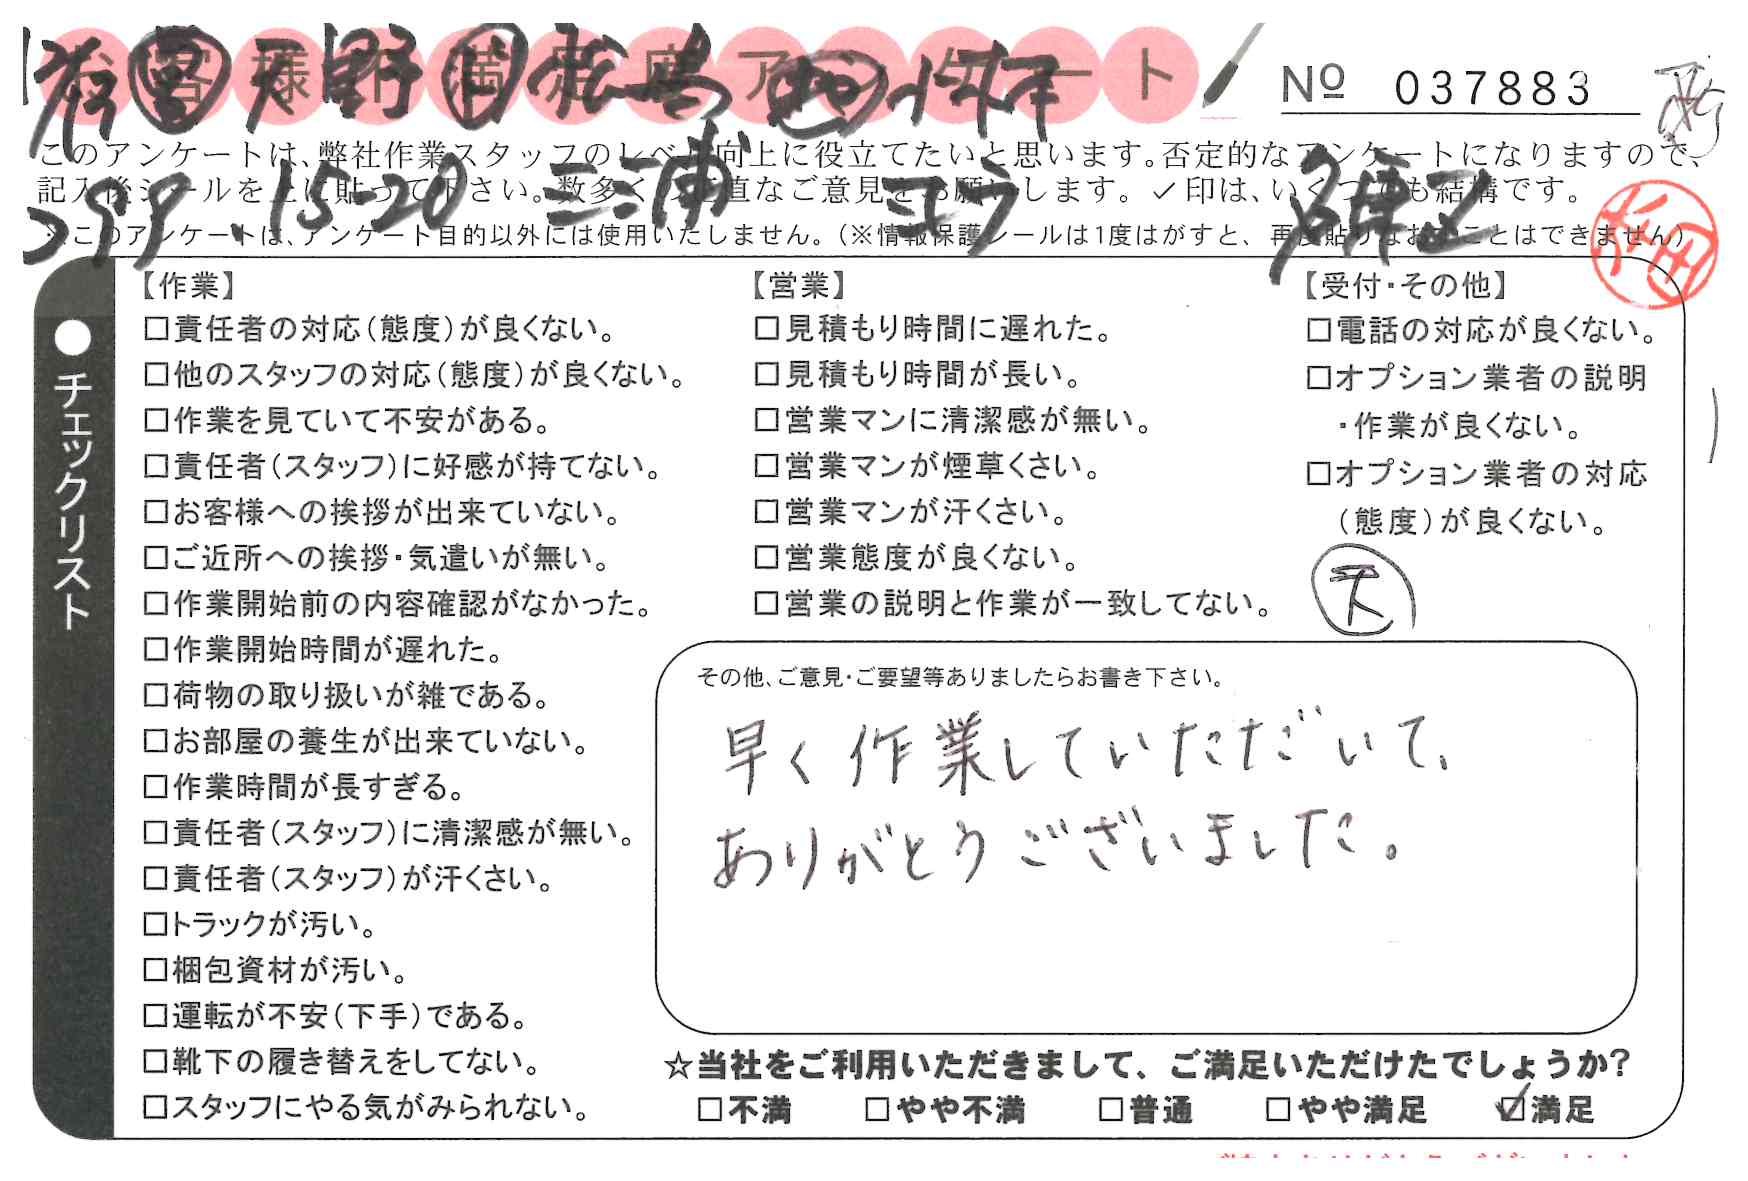 お客様不満足度アンケート
№ 037883
このアンケートは、弊社作業スタッフのレベル向上に役立てたいと思います。否定的なアンケートになりますので、
記入後シールを上に貼って下さい。数多くの正直なご意見をお願いします。✓印は、いくつでも結構です。
※このアンケートは、アンケート目的以外には使用いたしません。(※情報保護シールは1度はがすと、再度貼りなおすことはできません)
天野
299.15-20 三浦
●チェックリスト
【作業】
□責任者の対応(態度)が良くない。
□他のスタッフの対応(態度)が良くない。
□作業を見ていて不安がある。
□責任者(スタッフ)に好感が持てない。
□お客様への挨拶が出来ていない。
□ご近所への挨拶・気遣いが無い。
□作業開始前の内容確認がなかった。
□作業開始時間が遅れた。
□荷物の取り扱いが雑である。
□お部屋の養生が出来ていない。
□作業時間が長すぎる。
□責任者(スタッフ)に清潔感が無い。
□責任者(スタッフ)が汗くさい。
□トラックが汚い。
□梱包資材が汚い。
□運転が不安(下手)である。
□靴下の履き替えをしてない。
□スタッフにやる気がみられない。
【営業】
□見積もり時間に遅れた。
□見積もり時間が長い。
□営業マンに清潔感が無い。
□営業マンが煙草くさい。
□営業マンが汗くさい。
□営業態度が良くない。
□営業の説明と作業が一致してない。
【受付・その他】
□電話の対応が良くない。
□オプション業者の説明
・作業が良くない。
□オプション業者の対応
(態度)が良くない。
その他、ご意見・ご要望等ありましたらお書き下さい。
早く作業していただいて、
ありがとうございました。
☆当社をご利用いただきまして、ご満足いただけたでしょうか?
□不満 □やや不満 □普通 □やや満足 ☑満足